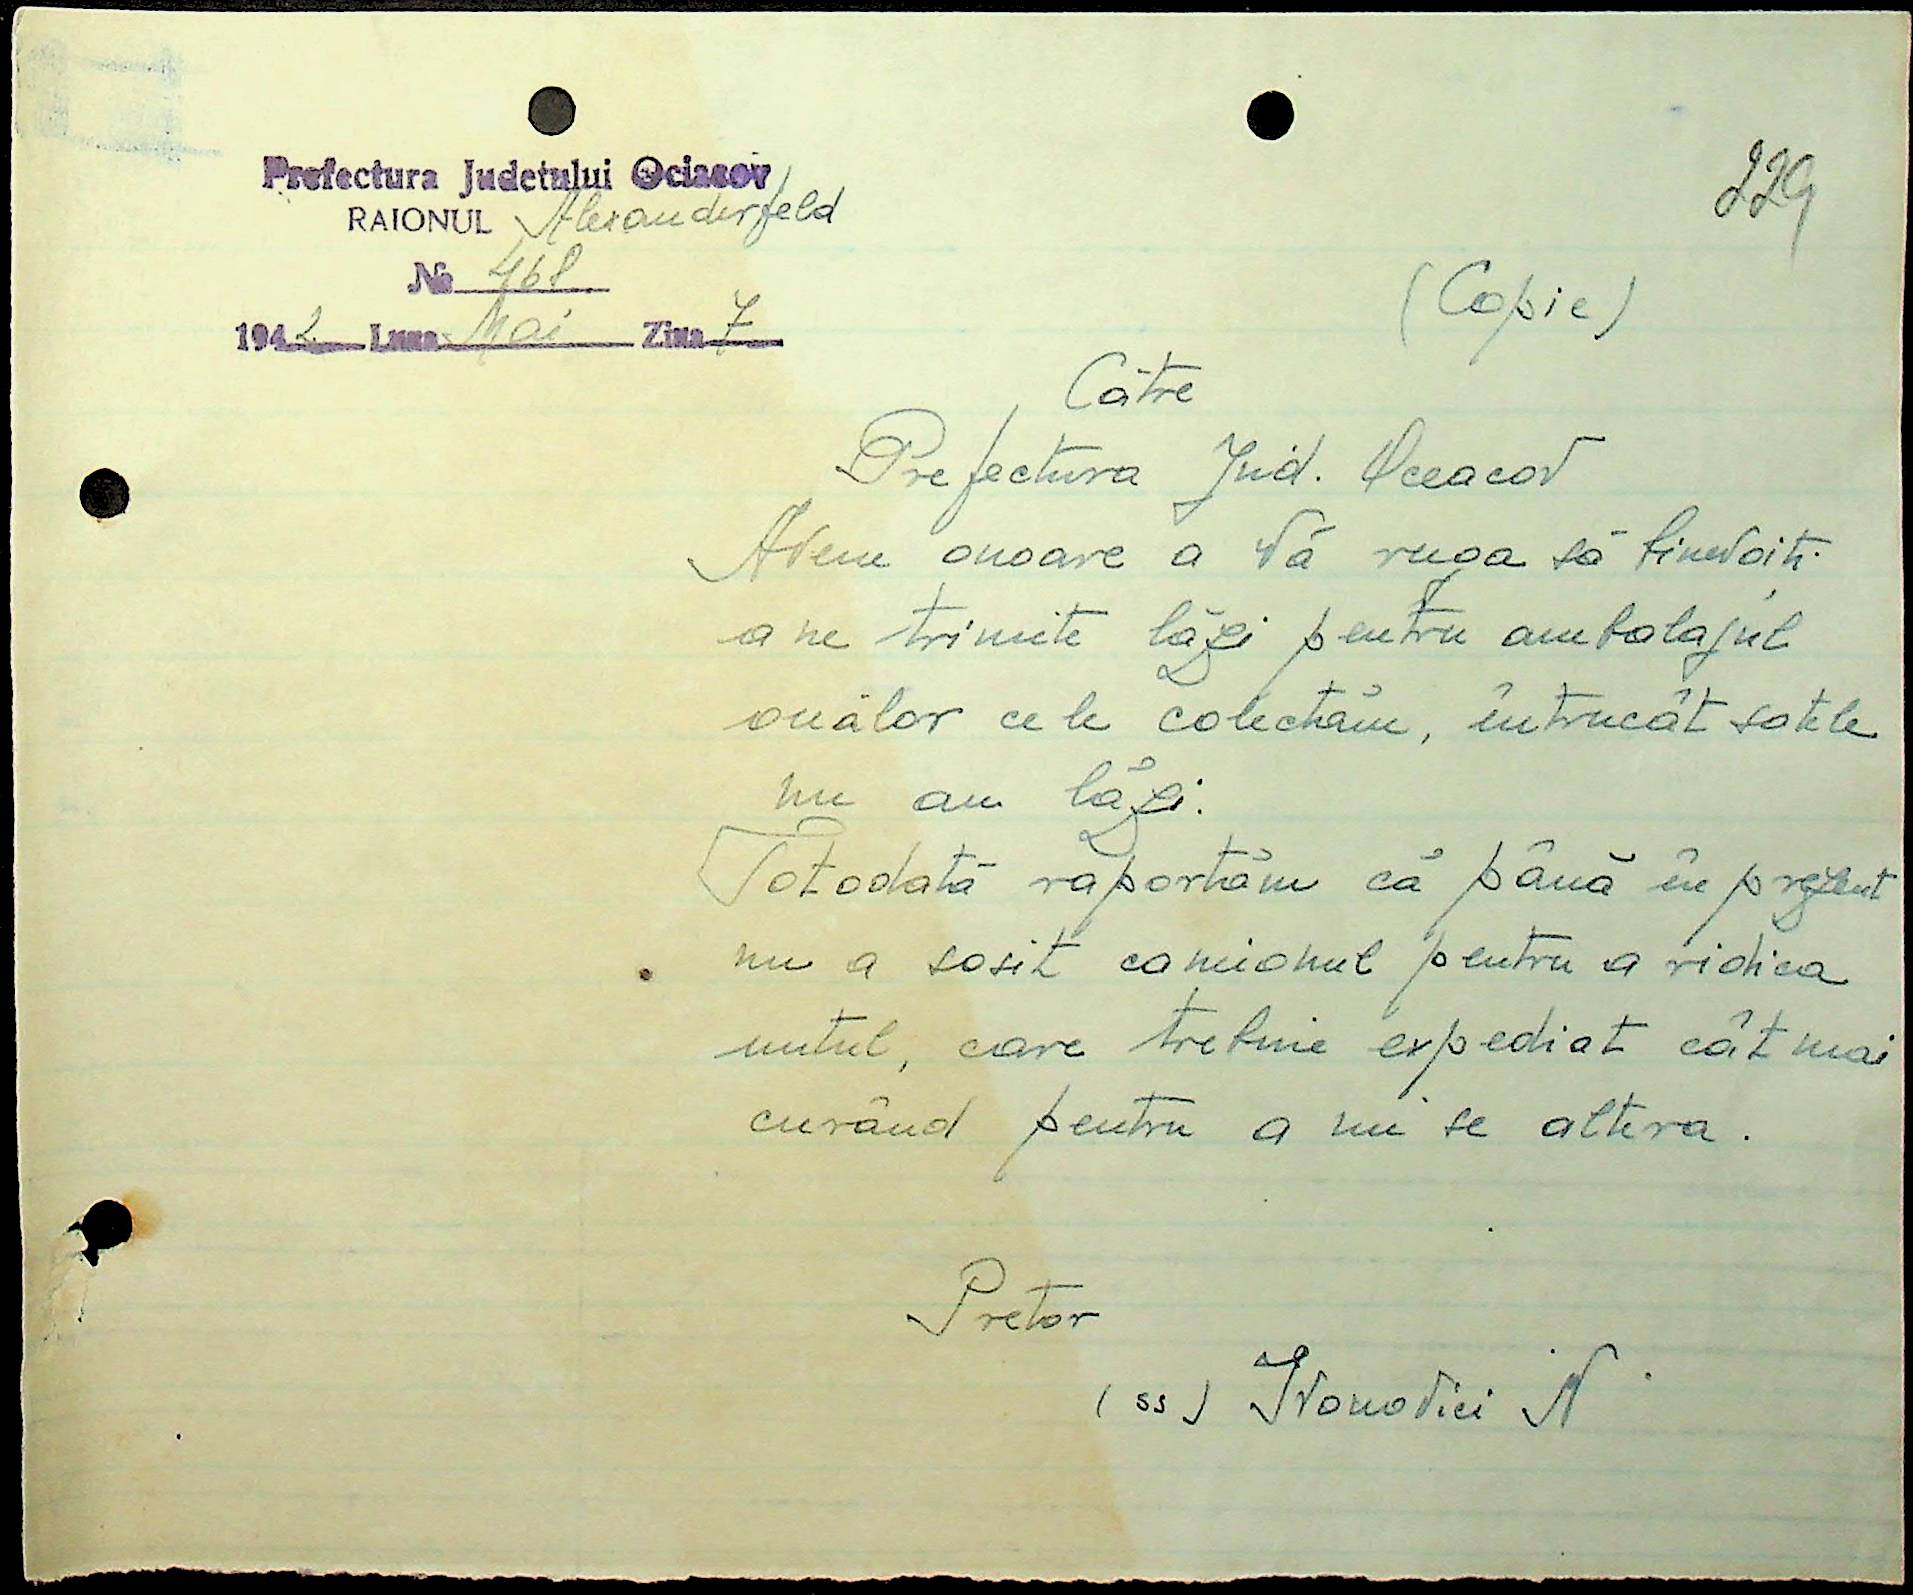 Prefectura Judetului Ociacov
RAIONUL Alexanderfeld
229
№ 468
(Copie)
1942 Luna Mai Ziua 7
Către
Prefectura Jud. Oceacov
Avem onoare a Vă ruga să binevoiți
a ne trimite lăzi pentru ambalajul
ouălor ce le colectăm, întrucât satele
nu au lăzi.
Totodată raportăm că până în prezent
nu a sosit camionul pentru a ridica
untul, care trebuie expediat cât mai
curând pentru a nu se altera.
Pretor
(ss) Ivanovici N